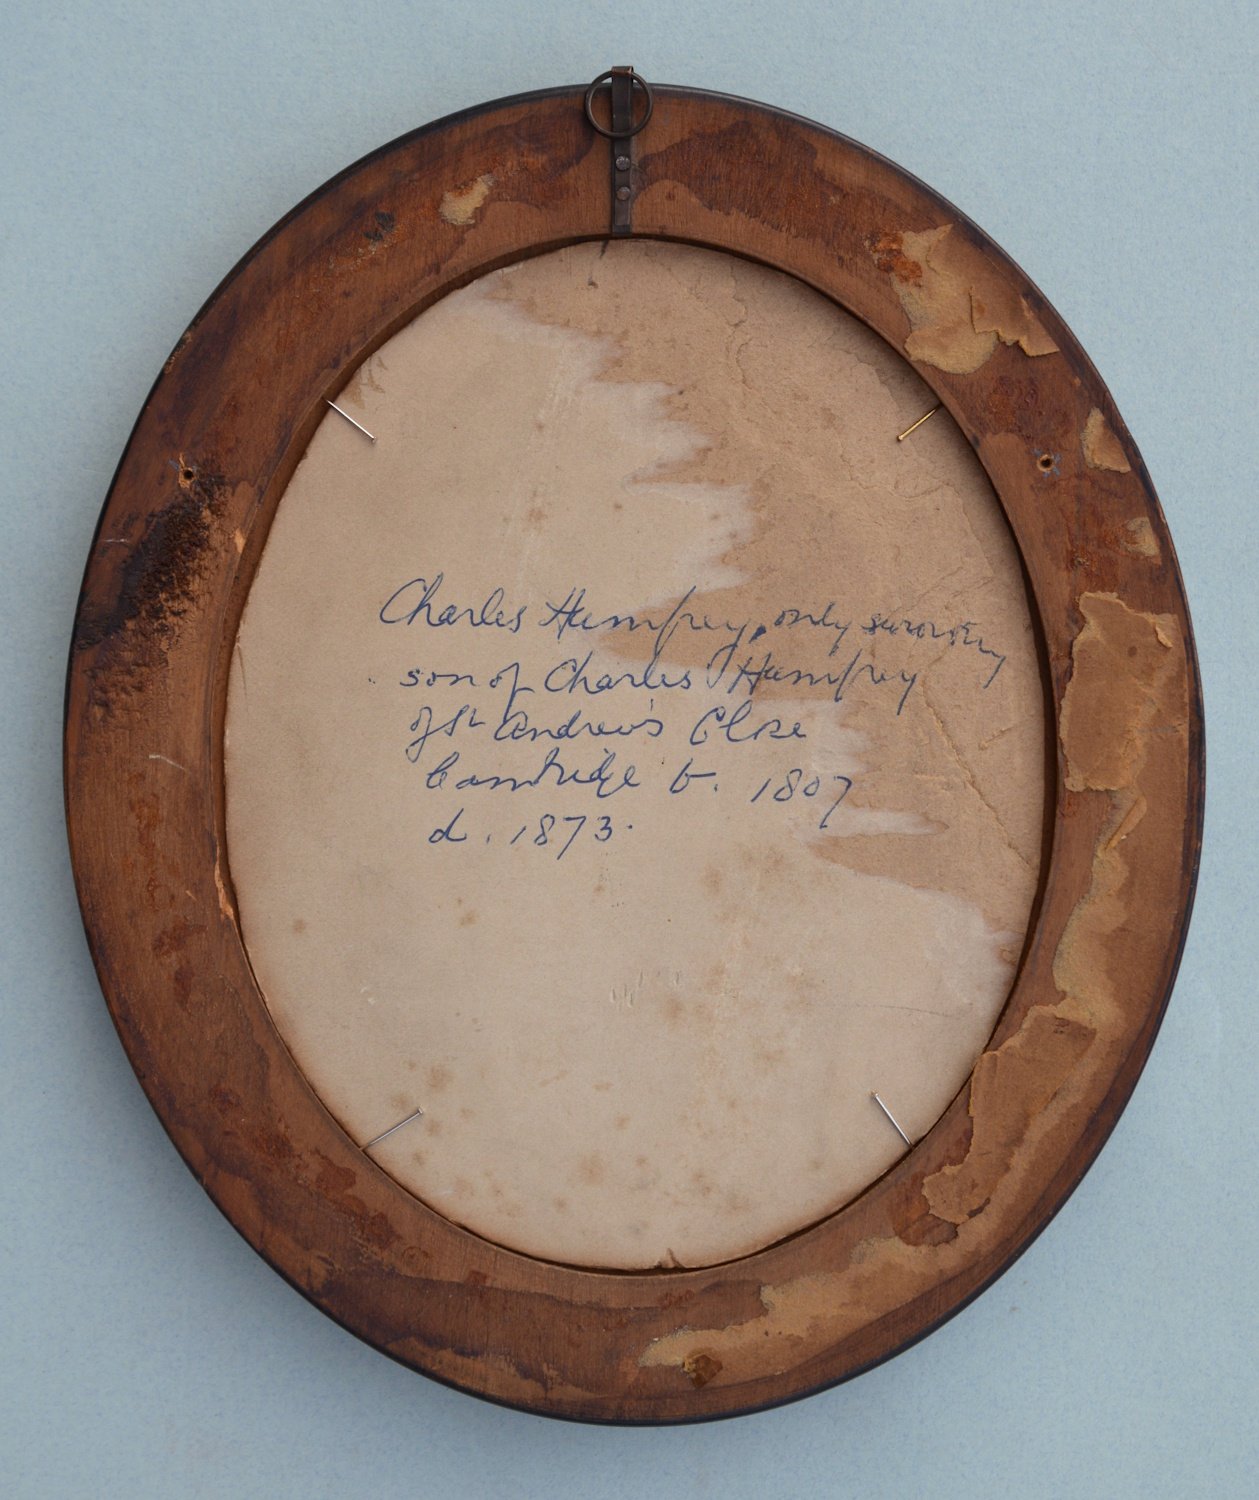 Charles Humfrey, only surviving
son of Charles Humfrey
of St Andrew's Close
Cambridge b. 1807
d. 1873.